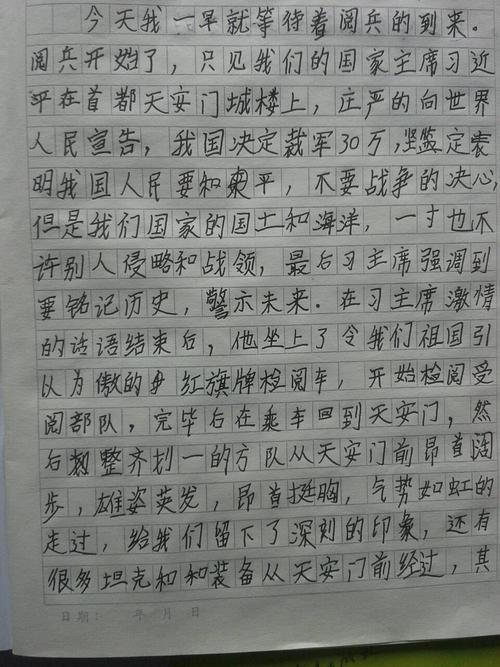 今天我一早就等待着阅兵的到来。
阅兵开始了，只见我们的国家主席习近
平在首都天安门城楼上，庄严的向世界
人民宣告，我国决定裁军30万，坚定表
明我国人民要和平，不要战争的决心，
但是我们国家的国土和海洋，一寸也不
许别人侵略和战领，最后习主席强调到
要铭记历史，警示未来．在习主席激情
的话语结束后，他坐上了令我们祖国引
以为傲的红旗牌检阅车，开始检阅受
阅部队，完毕后在乘车回到天安门，然
后整齐划一的方队从天安门前昂首阔
步，雄姿英发，昂首挺胸，气势如虹的
走过，给我们留下了深刻的印象，还有
很多坦克和和装备从天安门前经过，其
日期： 年 月 日